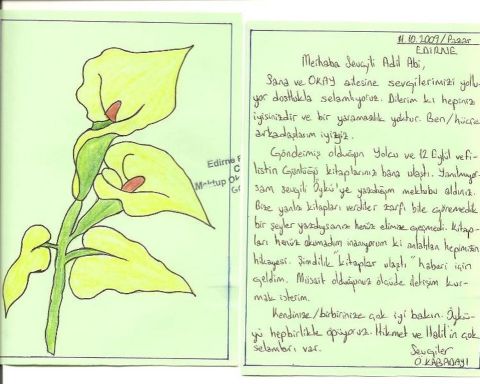 11.10.2009/Pazar
EDİRNE
Merhaba Sevgili Adil Abi,
Sana ve OKAY ailesine sevgilerimizi yollu-
yor dostlukla selamlıyoruz. Dilerim ki hepiniz
iyisinizdir ve bir yaramazlık yoktur. Ben/hücre
arkadaşlarım iyiyiz.
Göndermiş olduğun Yolcu ve 12 Eylül ve Fi-
listin Günlüğü kitaplarınız bana ulaştı. Yanılmıyor-
sam sevgili Öykü'ye yazdığım mektubu aldınız.
Bize yanlız kitapları verdiler zarfı bile göremedik
bir şeyler yazdıysanız henüz elimize geçmedi. Kitap-
ları henüz okumadım inanıyorum ki anlatılan hepimizin
hikayesi. Şimdilik "kitaplar ulaştı" haberi için
geldim. Müsait olduğunuz ölçüde iletişim kur-
mak isterim.
Kendinize/birbirinize çok iyi bakın. Öykü-
yü hepbirlikte öpüyoruz. Hikmet ve Halit'in çok
selamları var.
Sevgiler
O.KABADAYI
Edirne
Mektup Ok